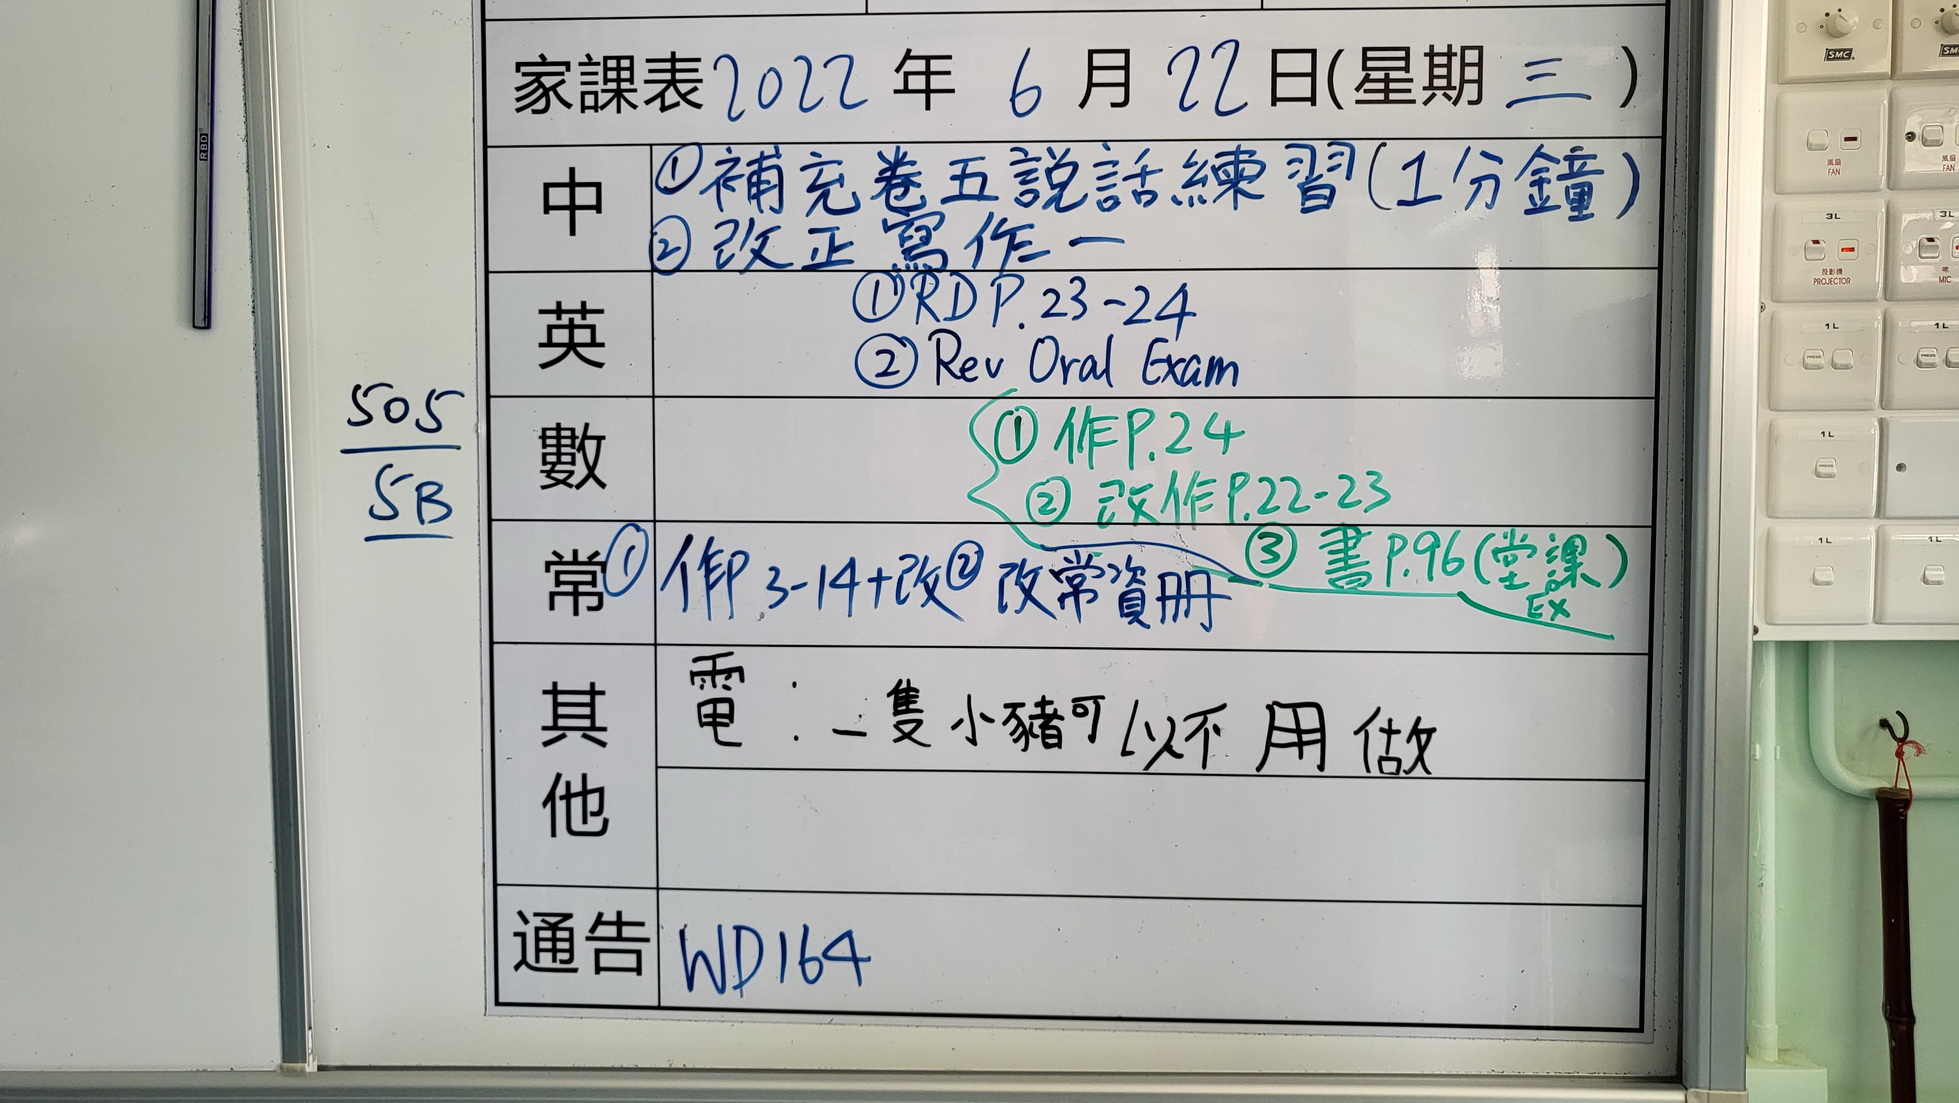 家課表2022年 6月 22日(星期三)
中 ①補充卷五説話練習(1分鐘)
②改正寫作一
英 ①RD P.23-24
②Rev Oral Exam
數 ①作P.24
②改作P.22-23
③書P.96(堂課)
EX
常 ①作P.3-14+改②改常資冊
其他 電:一隻小豬可以不用做
通告 WD164
505
5B
RBD
SMC
風扇
FAN
3L
3L
投影機
PROJECTOR
咪
MIC
1L
1L
PRESS
PRESS
1L
PRESS
1L
1L